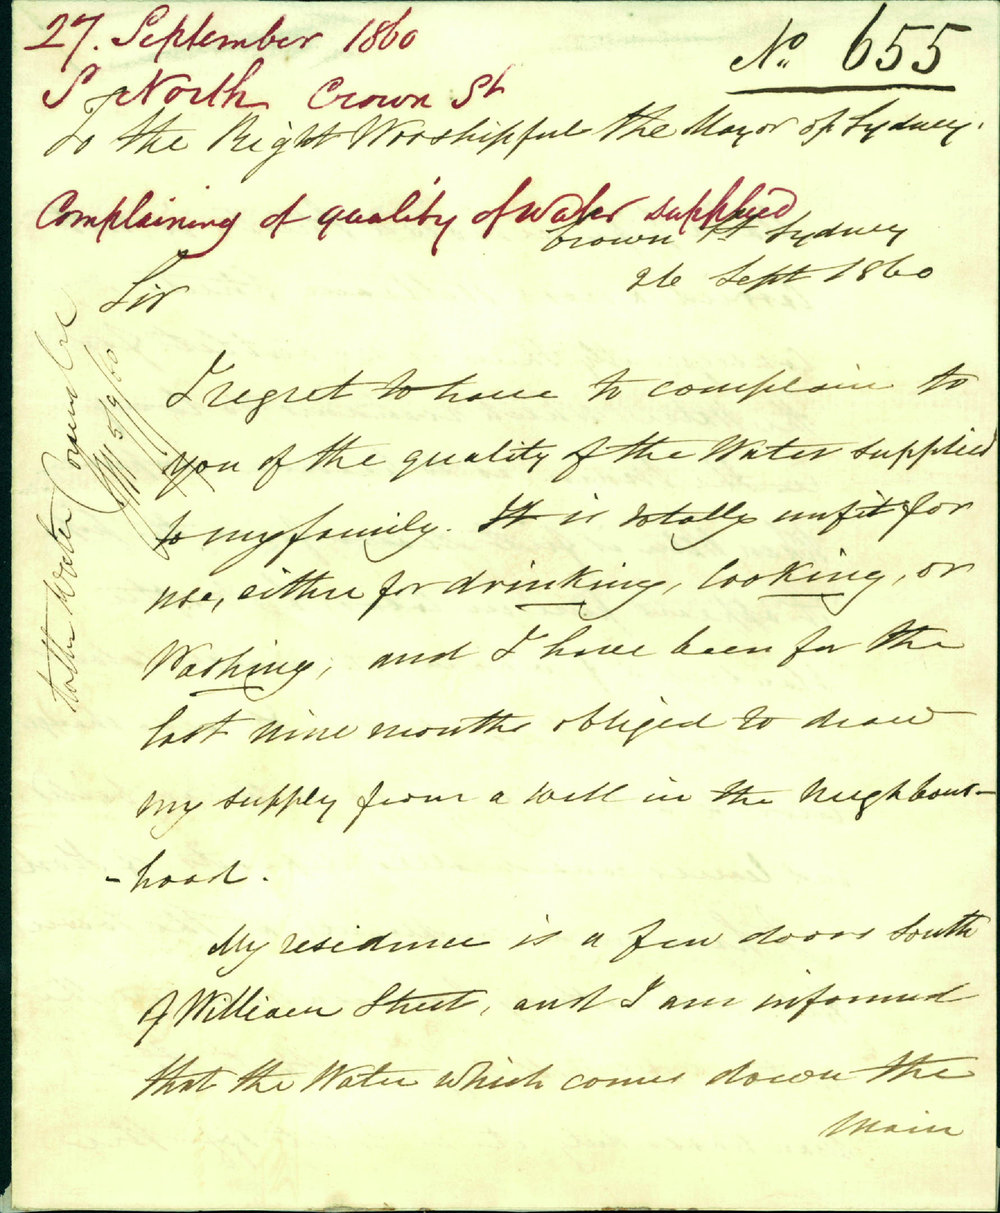 27. September 1860
No. 655
S North Crown St
To the Right Worshipful the Mayor of Sydney.
Complaining of quality of water supplied
Crown St Sydney
26 Sept 1860
Sir
I regret to have to complain to
you of the quality of the Water supplied
to my family. It is totally unfit for
use, either for drinking, cooking, or
Washing, and I have been for the
last nine months obliged to draw
my supply from a well in the neighbour-
-hood.
My residence is a few doors South
of William Street, and I am informed
that the Water which comes down the
main
to the Water Committee